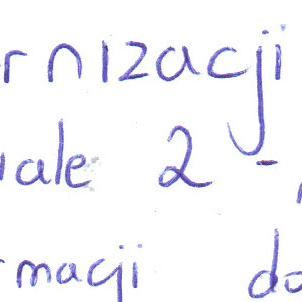 rnizacji
ale 2 -
rmacji do